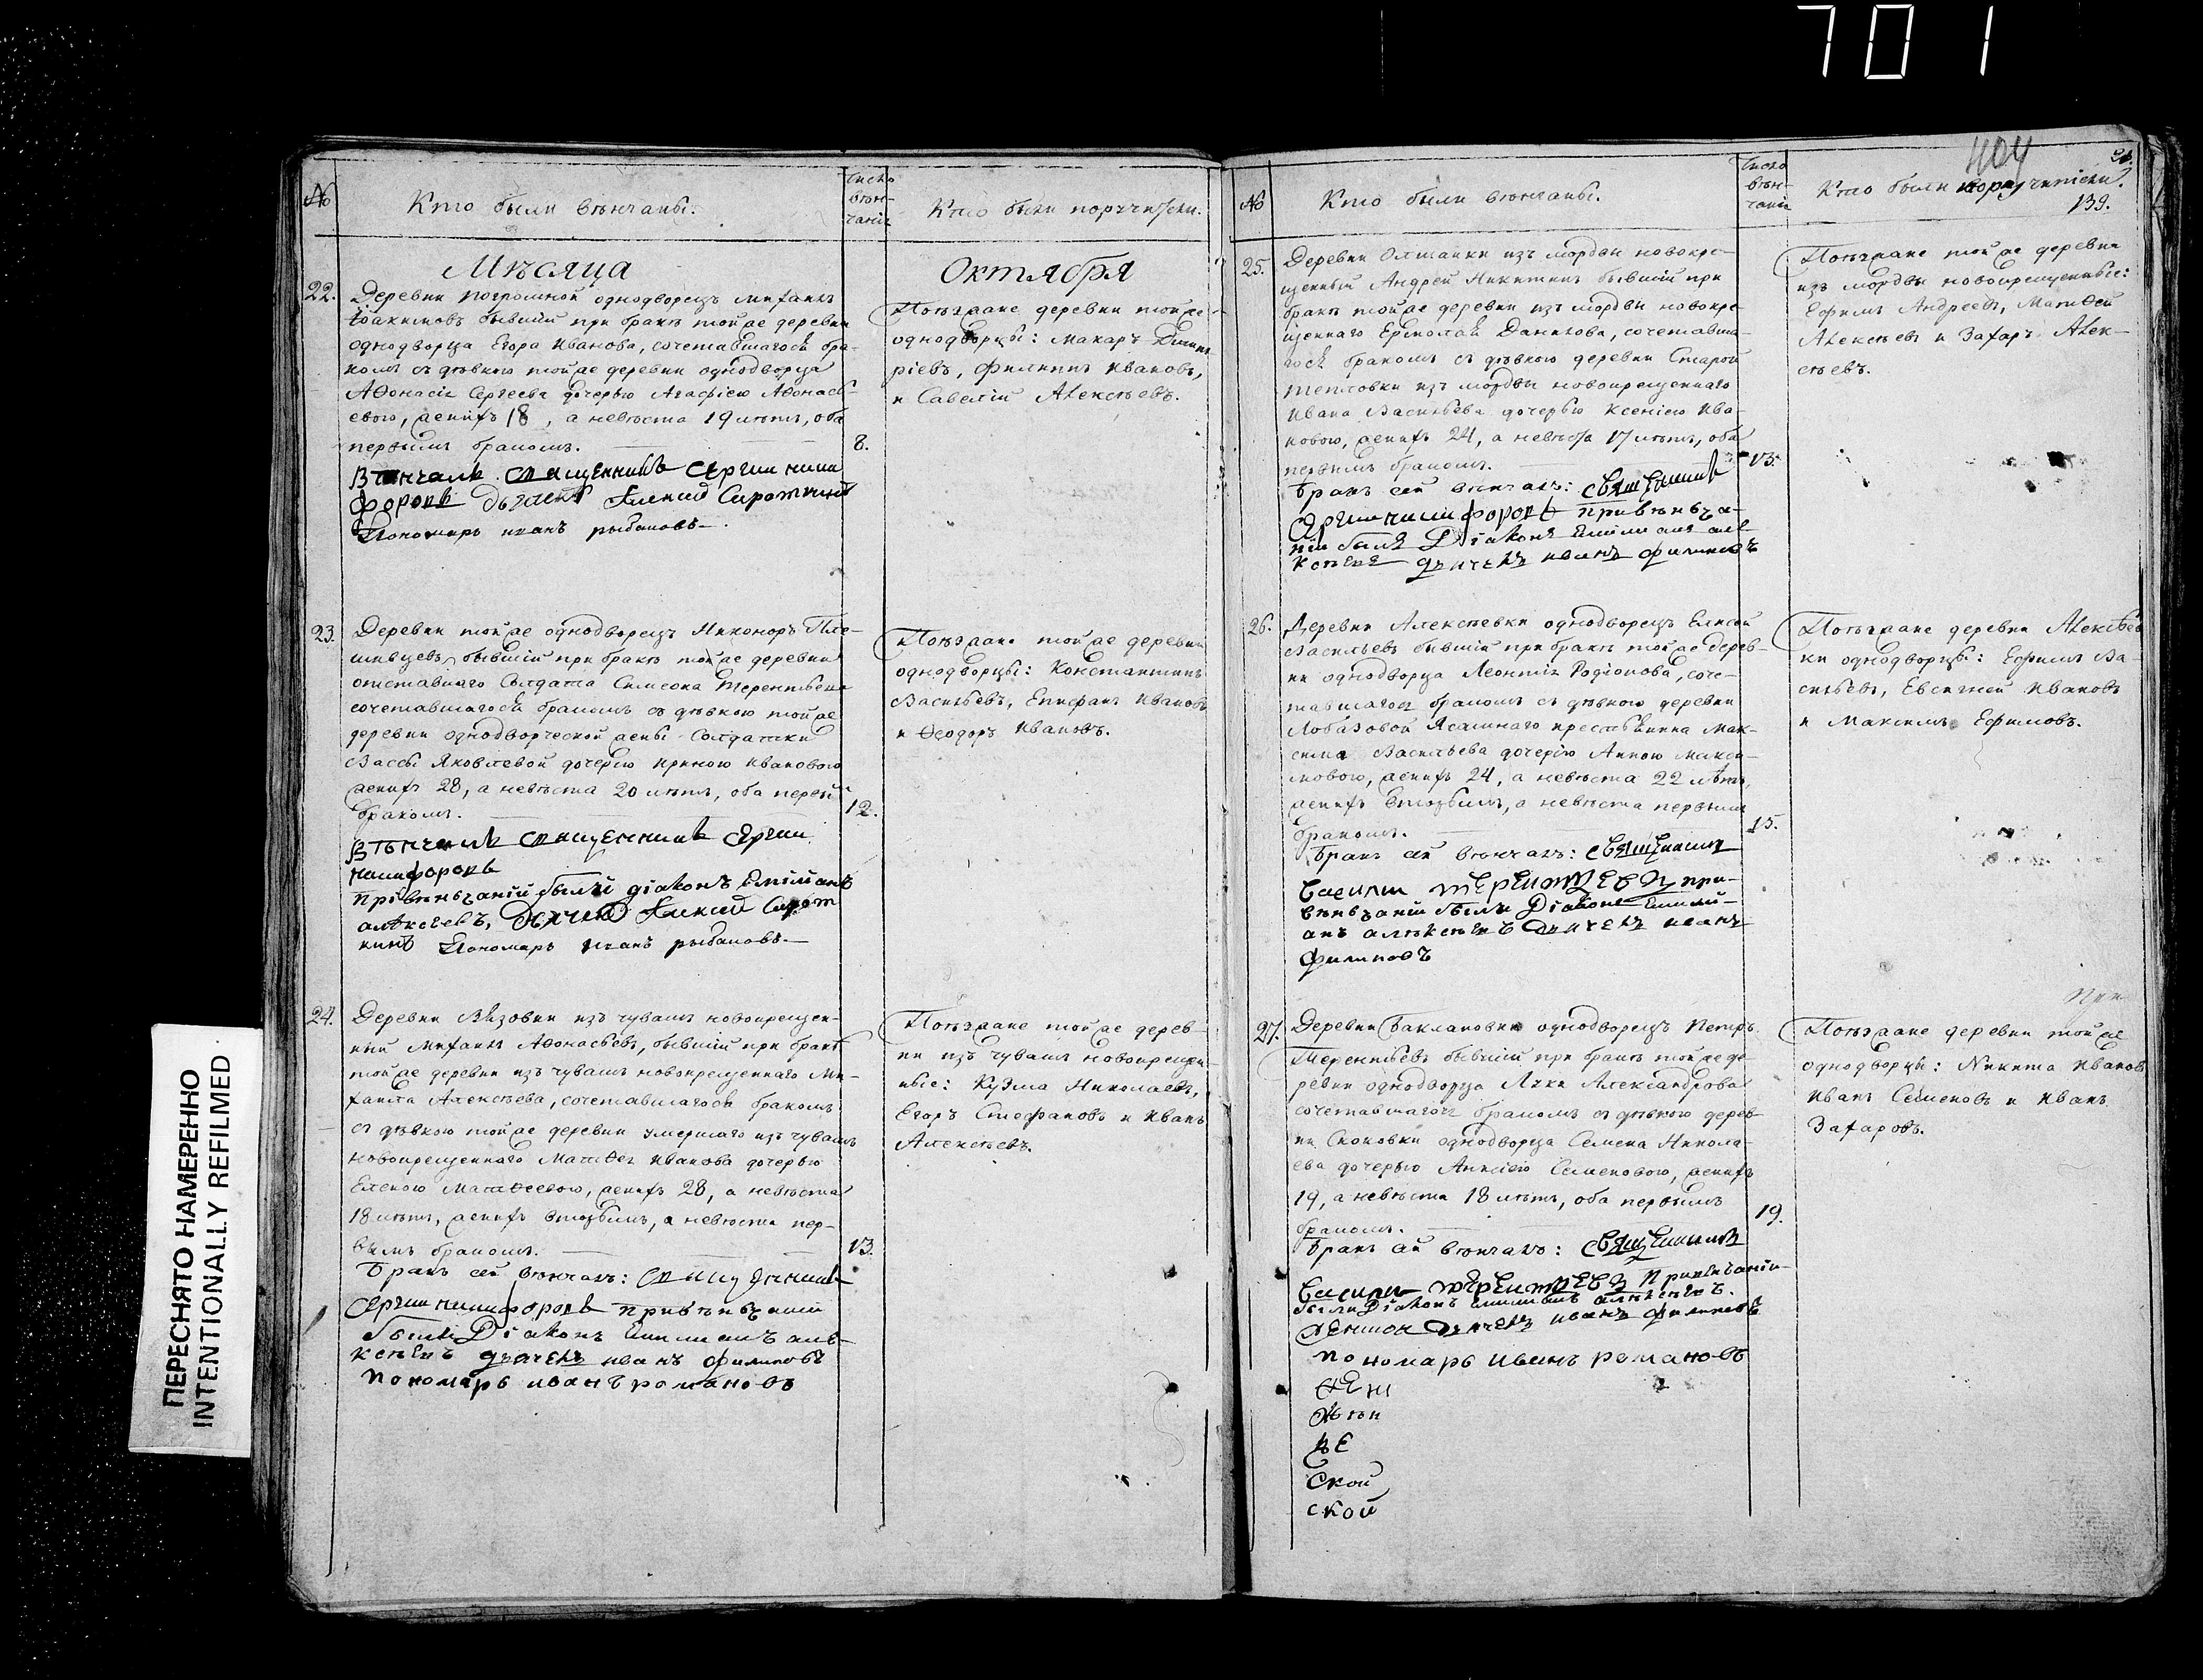 701
ПЕРЕСНЯТО НАМЕРЕННО
INTENTIONALLY REFILMED
№
Кто были вѣнчаны.
Число
вѣн-
чанія
Кто были поручители.
Мѣсяца
Октября
22.
Деревни Погромной однодворецъ Михаилъ
Іоакимовъ бывшій при бракѣ той же деревни
однодворца Егора Иванова, сочетавшагося бра-
комъ съ дѣвкою той же деревни однодворца
Аѳонасія Сергеева дочерью Агафіею Аѳонась-
евою, женихъ 18, а невѣста 19 лѣтъ, оба
первымъ бракомъ.
8.
Вѣнчалъ священникъ Сергии ники
форовъ дьячекъ Алексий Сироткинъ
Пономарь иванъ рыбаковъ
Поѣзжане деревни той же
однодворцы: Макаръ Дмит
ріевъ, Филиппъ Ивановъ,
и Савелій Алексѣевъ.
23.
Деревни той же однодворецъ Никоноръ Пле-
шивцевъ, бывшій при бракѣ той же деревни
отставнаго Солдата Симеона Терентьева
сочетавшагося бракомъ съ дѣвкою той же
деревни однодворческой жены Солдатки
Вассы Яковлевой дочерію Ириною Ивановою
женихъ 28, а невѣста 20 лѣтъ, оба первым
бракомъ.
12.
Вѣнчалъ священникъ Сергии
никифоровъ
при вѣньчаніи были діаконъ Емиліанъ
алексеевъ, дьячекъ Алексий Сирот
кинъ Пономарь иванъ рыбаковъ
Поѣзжане той же деревни
однодворцы: Константинъ
Васильевъ, Епифанъ Ивановъ
и Ѳеодоръ Ивановъ.
24.
Деревни Вязовки изъ чувашъ новокрещен-
ный Михаилъ Аѳонасьевъ, бывшій при бракѣ
той же деревни изъ чувашъ новокрещеннаго Ми-
хаила Алексѣева, сочетавшагося бракомъ
съ дѣвкою той же деревни умершаго изъ чувашъ
новокрещеннаго Матѳея Иванова дочерью
Еленою Матѳеевою, женихъ 28, а невѣста
18 лѣтъ, женихъ вторымъ, а невѣста пер-
вымъ бракомъ.
13.
Бракъ сей вѣнчалъ: священникъ
Сергии никифоровъ при вѣньчании
были Діаконъ Емилианъ але-
ксѣевъ дьячекъ иванъ филиповъ
пономарь иванъ романовъ
Поѣзжане той же дерев-
ни изъ чувашъ новокрещен
ные: Кузма Николаевъ,
Егоръ Стефановъ и Иванъ
Алексѣевъ.
404
139.
№
Кто были вѣнчаны.
Число
вѣн-
чанія
Кто были поручители.
25.
Деревни Олшанки изъ мордвы новокре-
щенный Андрей Никитинъ бывшій при
бракѣ той же деревни изъ мордвы новокре-
щеннаго Ермолая Данилова, сочетавша-
гося бракомъ съ дѣвкою деревни Старой
Тепловки изъ мордвы новокрещеннаго
Ивана Васильева дочерью Ксеніею Ива-
новою, женихъ 24, а невѣста 17 лѣтъ, оба
первымъ бракомъ.
13.
Бракъ сей вѣнчалъ: священникъ
Сергии никифоровъ при вѣньча-
ніи были Діаконъ Емилианъ але-
ксѣевъ дьячекъ иванъ филиповъ
Поѣзжане той же деревни
изъ мордвы новокрещенные:
Ефимъ Андреевъ, Матѳей
Алексѣевъ и Захаръ Алек-
сѣевъ.
26.
Деревни Алексѣевки однодворецъ Елисей
Васильевъ бывшій при бракѣ той же дерев-
ни однодворца Леонтія Родіонова, соче-
тавшагося бракомъ съ дѣвкою деревни
Лобазовой Ясашнаго крестьянина Мак-
сима Васильева дочерію Анною Макси-
мовою, женихъ 24, а невѣста 22 лѣтъ,
женихъ вторымъ, а невѣста первымъ
бракомъ.
15.
Бракъ сей вѣнчалъ: священникъ
василии терентьевъ при-
вѣньчаніи были Діаконъ Емили-
анъ алѣксѣевъ дьячекъ иванъ
филиповъ
Поѣзжане деревни Алексѣев
ки однодворцы: Ефимъ Ва-
сильевъ, Евсигней Ивановъ
и Максимъ Ефимовъ.
27.
Деревни Баклановки однодворецъ Петръ
Терентьевъ бывшій при бракѣ той же де-
ревни однодворца Луки Александрова
сочетавшагося бракомъ съ дѣвкою дерев-
ни Скоковки однодворца Семена Никола-
ева дочерью Аннсіею Семеновою, женихъ
19, а невѣста 18 лѣтъ, оба первымъ
бракомъ.
19.
Бракъ сей вѣнчалъ: священникъ
василии терентьевъ При вѣнчаніи
были Діаконъ Емилианъ алѣксѣевъ
дьячекъ иванъ филиповъ
пономарь иванъ романовъ
ской
ской
Поѣзжане деревни той же
однодворцы: Никита Ивановъ
Иванъ Семеновъ и Иванъ
Захаровъ.